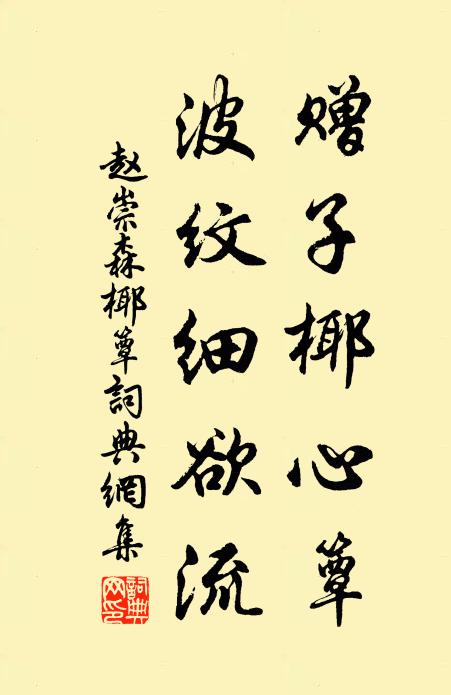 赠子椰心簟
波纹细欲流
赵崇森椰簟詞典網集
詞典网印